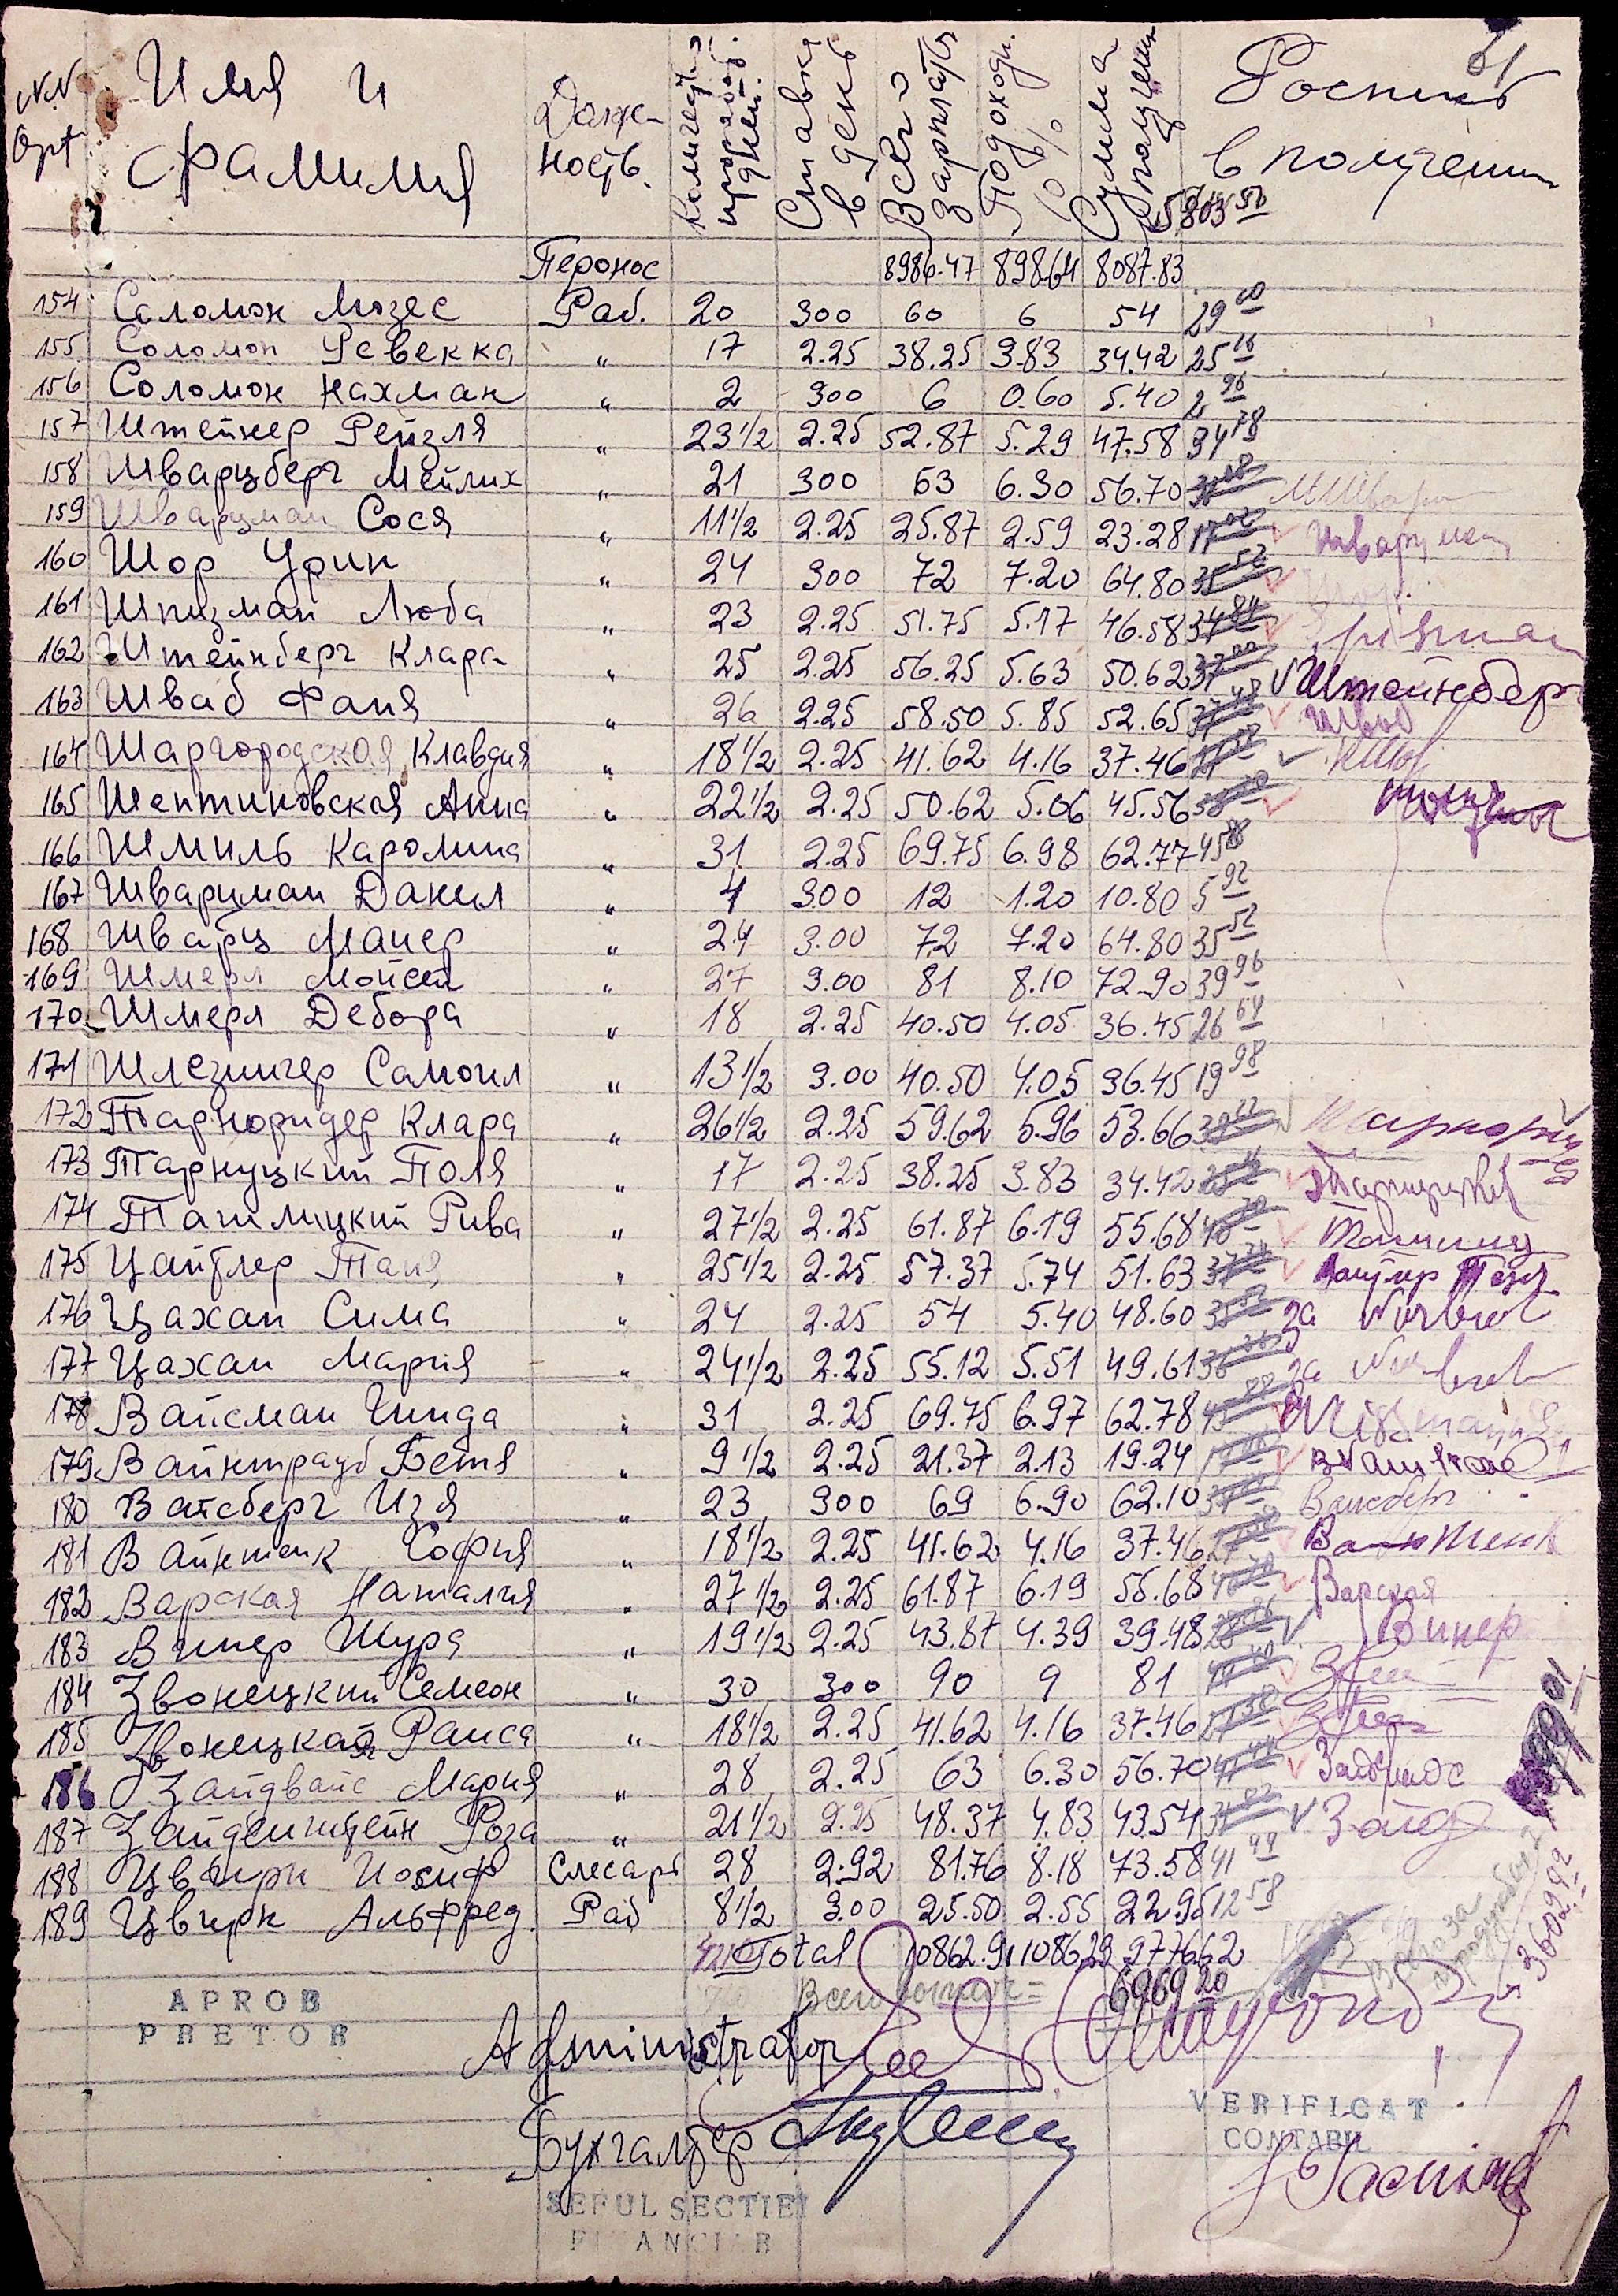 61
NN Opt Имя и Фамилия Должность. Количеств. прораб. дней. Ставка в день Всего Зарплаты Подоходн. 10% Сумма к получению Роспись в получении
5803 50
Перенос 8986.47 898.64 8087.83
154 Соломон Мозес Раб. 20 300 60 6 54 29 60
155 Соломон Ревекка " 17 2.25 38.25 3.83 34.42 25 16
156 Соломон Нахман " 2 300 6 0.60 5.40 2 96
157 Штейнер Рейзля " 23½ 2.25 52.87 5.29 47.58 34 78
158 Шварцберг Мейлих " 21 300 63 6.30 56.70
159 Шварцман Сося " 11½ 2.25 25.87 2.59 23.28 17 02
160 Шор Урин " 24 300 72 7.20 64.80 35 52
161 Шпизман Люба " 23 2.25 51.75 5.17 46.58 34 84
162 Штейнберг Клара " 25 2.25 56.25 5.63 50.62 37 00 Штейнберг
163 Шваб Фаня " 26 2.25 58.50 5.85 52.65 37 48 Шваб
164 Шаргородская Клавдия " 18½ 2.25 41.62 4.16 37.46
165 Шептиновская Анна " 22½ 2.25 50.62 5.06 45.56
166 Шмиль Каролина " 31 2.25 69.75 6.98 62.77 45 88
167 Шварцман Данил " 4 3.00 12 1.20 10.80 5 92
168 Шварц Маиер " 24 3.00 72 7.20 64.80 35 52
169 Шмерл Мойсей " 27 3.00 81 8.10 72.90 39 96
170 Шмерл Дебора " 18 2.25 40.50 4.05 36.45 26 64
171 Шлезингер Самоил " 13½ 3.00 40.50 4.05 36.45 19 98
172 Тарноридер Клара " 26½ 2.25 59.62 5.96 53.66 39 22
173 Тарнуцкий Поля " 17 2.25 38.25 3.83 34.42 25 16
174 Ташлицкий Рива " 27½ 2.25 61.87 6.19 55.68 40 70
175 Цайглер Таня " 25½ 2.25 57.37 5.74 51.63 37 74
176 Цахан Сима " 24 2.25 54 5.40 48.60 35 52 за
177 Цахан Мария " 24½ 2.25 55.12 5.51 49.61 36 26 за
178 Вайсман Гинда " 31 2.25 69.75 6.97 62.78 45 88
179 Вайнтрауб Бетя " 9½ 2.25 21.37 2.13 19.24
180 Вайсберг Изя " 23 300 69 6.90 62.10 Вайсберг
181 Вайнтенк София " 18½ 2.25 41.62 4.16 37.46
182 Варская Наталия " 27½ 2.25 61.87 6.19 55.68 40 70 Варская
183 Винер Шура " 19½ 2.25 43.87 4.39 39.48 28 86 Винер
184 Звонецкий Семеон " 30 300 90 9 81 44 40
185 Звонецкая Раиса " 18½ 2.25 41.62 4.16 37.46 27 38
186 Зайдвайс Мария " 28 2.25 63 6.30 56.70 41 44
187 Зайденштейн Роза " 21½ 2.25 48.37 4.83 43.54 31 82
188 Цвирн Иосиф Слесарь 28 2.92 81.76 8.18 73.58 41 44
189 Цвирк Альфред. Раб 8½ 3.00 25.50 2.55 22.95 12 58
Total 10862.91 1086.29 9776.62
Всего 6969 20
3602.92
APROB
PRETOR
Administrator
VERIFICAT
CONTABIL
Бухгалтер
SEFUL SECTIEI
FINANCIAR